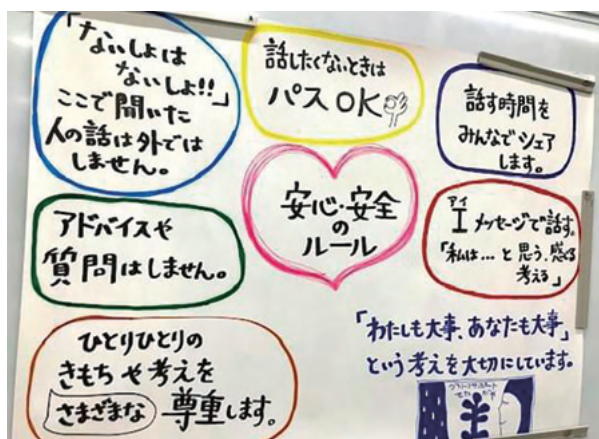 「ないしょは
ないしょ!!」
ここで聞いた
人の話は外では
しません。
話したくないときは
パス OK
話す時間を
みんなでシェア
します。
安心・安全
の
ルール
アドバイスや
質問はしません。
アイ
I メッセージで話す。
「私は…と思う、感じる
考える」
ひとりひとりの
きもちや考えを
さまざまな 尊重します。
「わたしも大事、あなたも大事」
という考えを大切にしています。